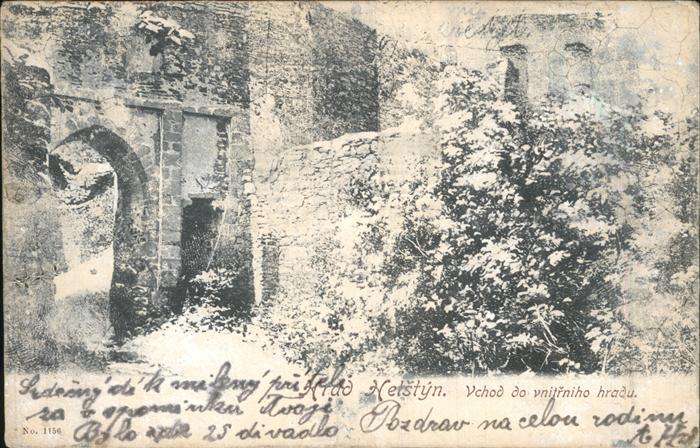 Hrad Helštýn. Vchod do vnitřního hradu.
Srdečný dík milený
za vzpomínku Tvoji
Bylo zde 25 divadlo
Pozdrav na celou rodinu
No. 1156